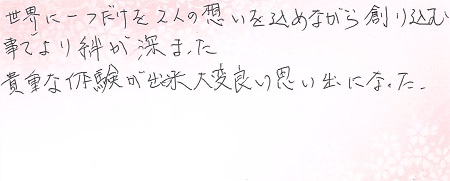 世界に一つだけを2人の想いを込めながら創り込む
事でより絆が深まった
貴重な体験が出来大変良い思い出になった.